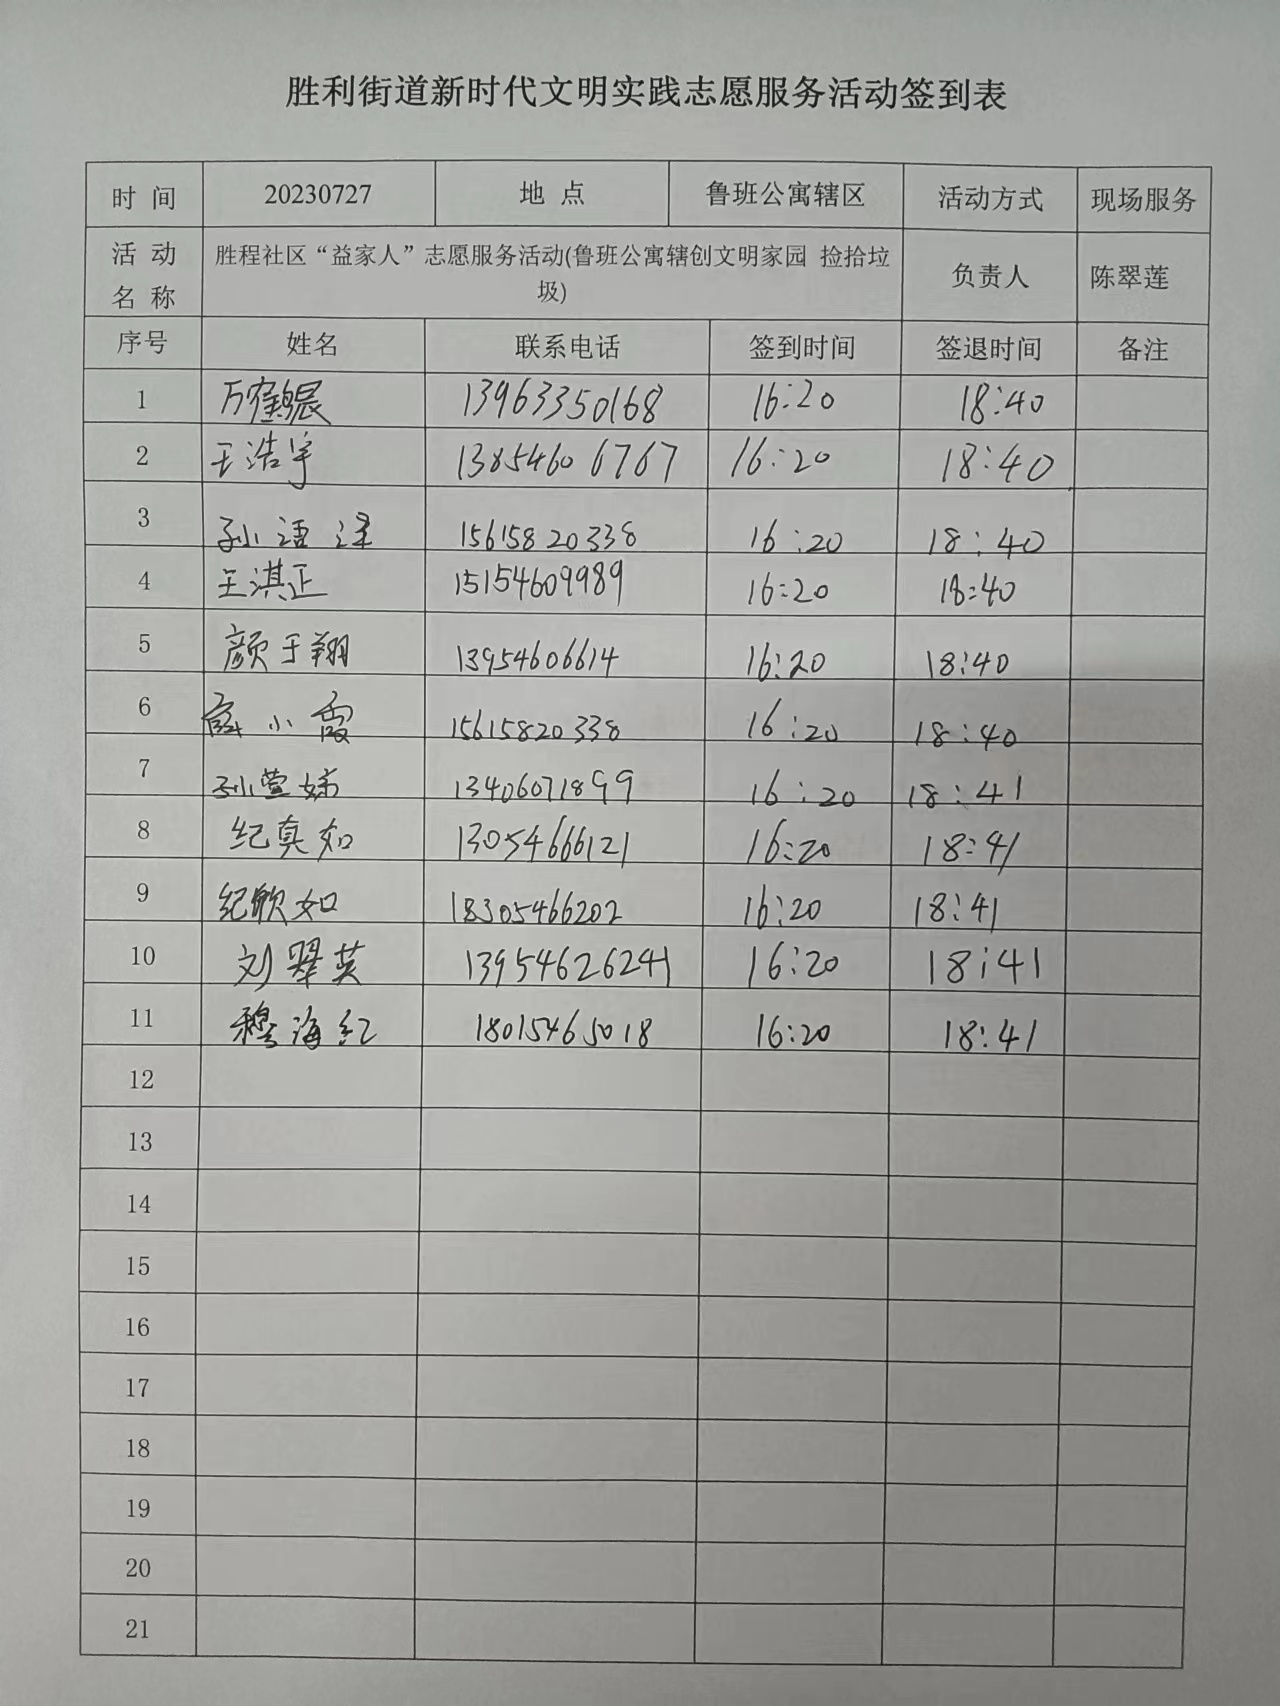 胜利街道新时代文明实践志愿服务活动签到表
时 间 20230727 地 点 鲁班公寓辖区 活动方式 现场服务
活 动 名 称 胜程社区“益家人”志愿服务活动(鲁班公寓辖创文明家园 捡拾垃圾) 负责人 陈翠莲
序号 姓名 联系电话 签到时间 签退时间 备注
1 13963350168 16:20 18:40
2 王浩宇 13854606767 16:20 18:40
3 15615820338 16:20 18:40
4 王淇正 15154609989 16:20 18:40
5 颜于翔 13954606614 16:20 18:40
6 小霞 15615820338 16:20 18:40
7 孙萱 13406071899 16:20 18:41
8 纪真如 13054666121 16:20 18:41
9 纪欣如 18305466202 16:20 18:41
10 刘翠英 13954626241 16:20 18:41
11 穆海红 18015465018 16:20 18:41
12
13
14
15
16
17
18
19
20
21